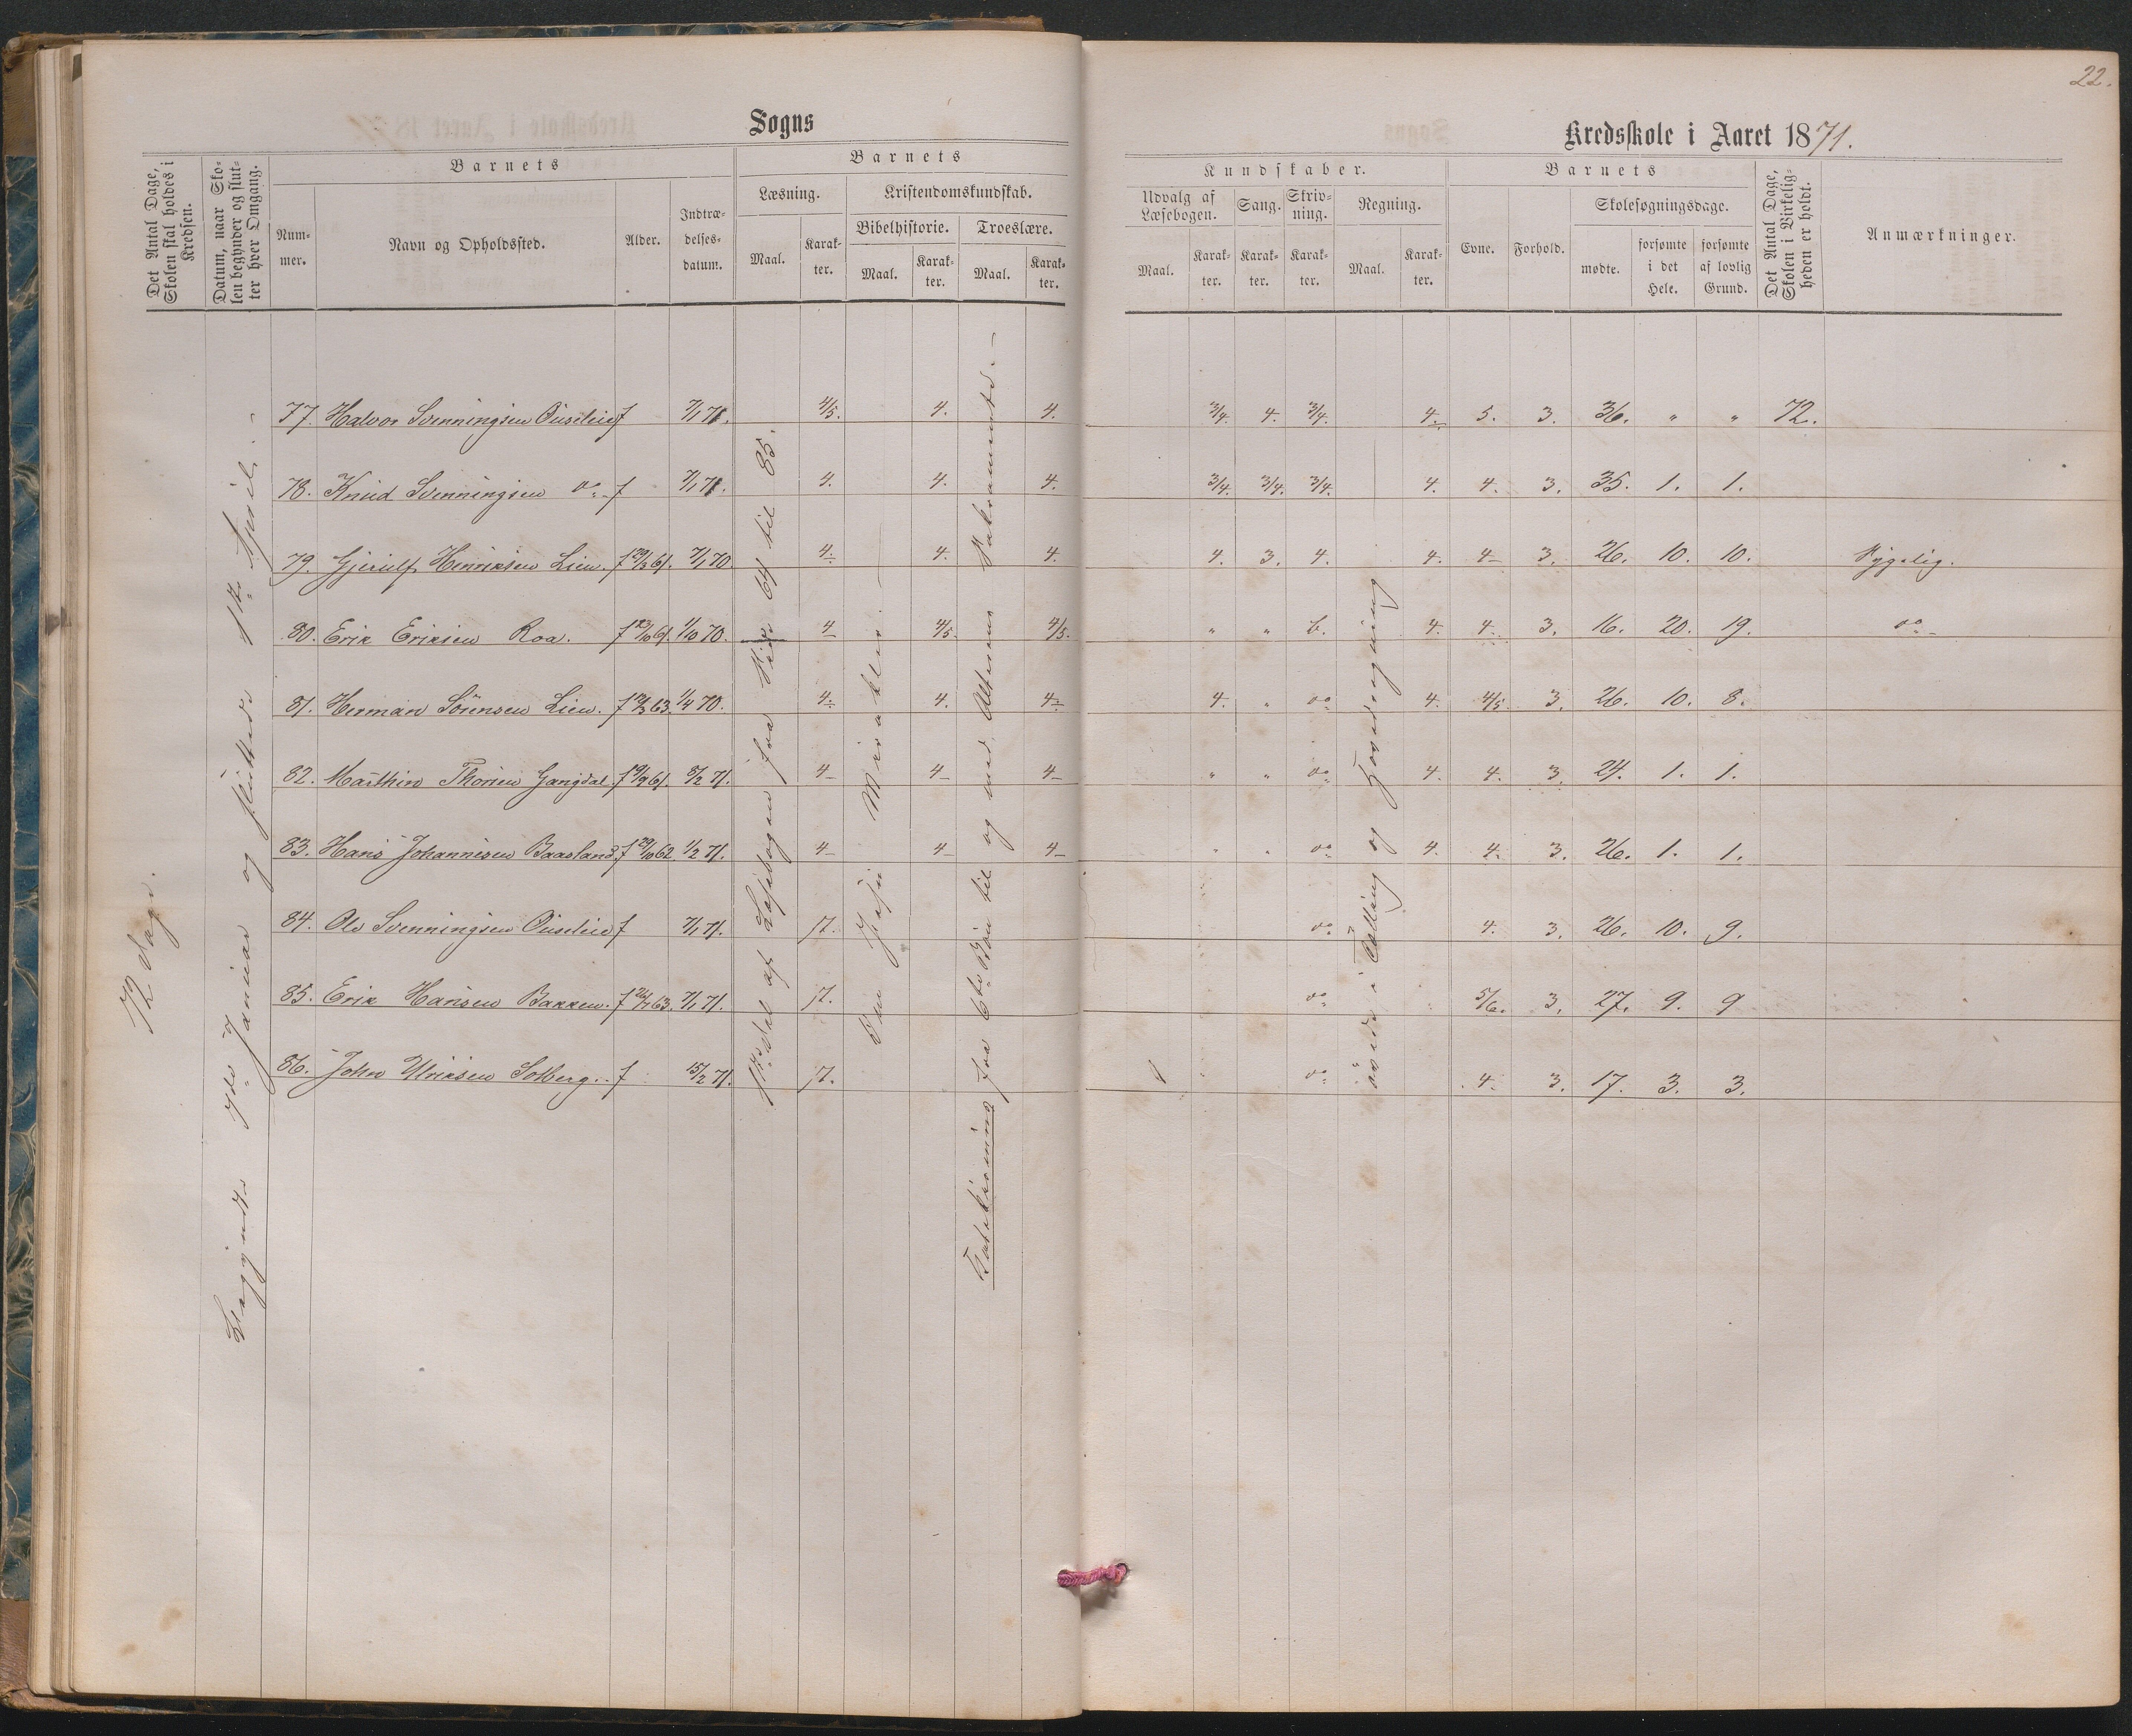 22.
Sogns
Kredsskole i Aaret 1871.
Det Antal Dage, Skolen skal holdes i Kredsen.
Datum, naar Skolen begynder og slutter hver Omgang.
Barnets
Nummer.
Navn og Opholdssted.
Alder.
Indtrædelsesdatum.
Barnets
Læsning.
Maal.
Karakter.
Kristendomskundskab.
Bibelhistorie.
Maal.
Karakter.
Troeslære.
Maal.
Karakter.
Kundskaber.
Udvalg af Læsebogen.
Maal.
Karakter.
Sang.
Karakter.
Skrivning.
Karakter.
Regning.
Maal.
Karakter.
Barnets
Evne.
Forhold.
Skolesøgningsdage.
mødte.
forsømte i det Hele.
forsømte af lovlig Grund.
Det Antal Dage, Skolen i Virkeligheden er holdt.
Anmærkninger.
72 Dage.
Begyndte 7de Januar og sluttede 1ste April. –
1ste Del af Læsebogen fra Side 64 til 85.
Om Jesu Mirakler. –
fra 6te Bøn til og med Alterens Sakramente. –
øvede i Tælling og Hovedregning
77. Halvor Svenningsen f 7/1 71. 4/5. 4. 4. 3/4. 4. 3/4. 4. 5. 3. 36. " " 72.
78. Knud Svenningsen do. f 7/1 71. 4. 4. 4. 3/4. 3/4. 3/4. 4. 4. 3. 35. 1. 1.
79. Gjerulf Henriksen Lien. f 61. 7/1 70 4. 4. 4. 4. 3. 4. 4. 4 3. 26. 10. 10. Sygelig.
80. Erik Eriksen Roa. f 23/10 61. 1/10 70. 4 4/5. 4/5. " " b. 4. 4. 3. 16. 20. 19. do. –
81. Herman Sørensen Lien. f 63. 1/4 70. 4. 4. 4 4. " do 4. 4/5 3. 26. 10. 8.
82. Marthin Thorsen Gangdal. f 61. 8/2 71. 4 4 4 " " do 4. 4. 3. 24. 1. 1.
83. Hans Johannesen Baasland. f 29/10 62 1/2 71. 4 4 4 " " do 4. 4. 3. 26. 1. 1.
84. Ole Svenningsen f 7/1 71. 7. do 4. 3. 26. 10. 9.
85. Erik Hansen Bakken. f 63. 7/1 71. 7. do 5/6. 3. 27. 9. 9
86. John Ulriksen Solberg. f 15/2 71. 7. do 4. 3. 17. 3. 3.